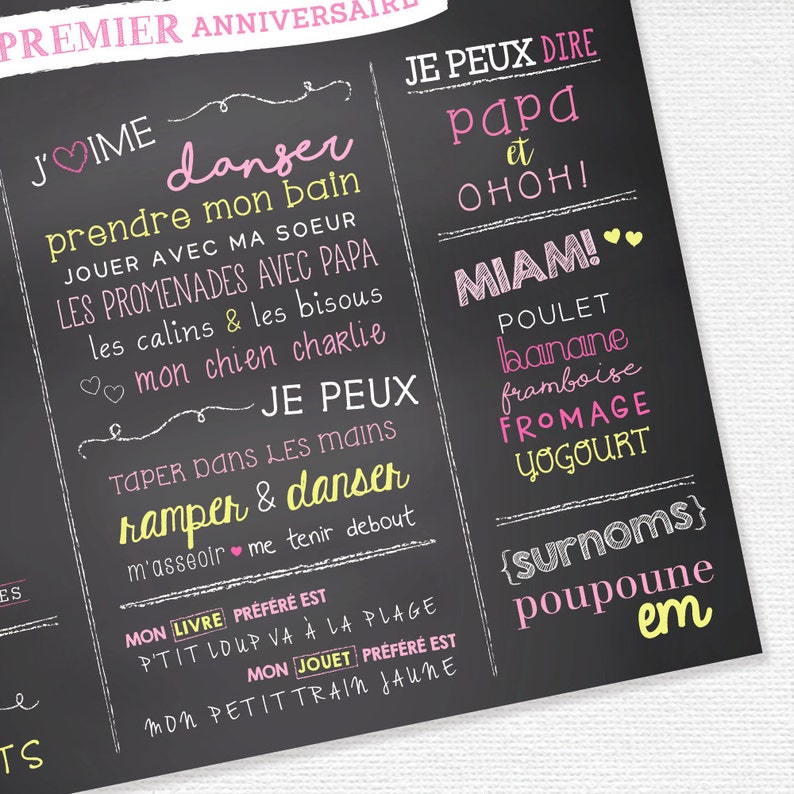 PREMIER ANNIVERSAIRE
J' IME
danser
prendre mon bain
JOUER AVEC MA SOEUR
LES PROMENADES AVEC PAPA
les calins & les bisous
mon chien charlie
JE PEUX
TAPER DANS LES MAINS
ramper & danser
m'asseoir me tenir debout
MON LIVRE PRÉFÉRÉ EST
P'TIT LOUP VA À LA PLAGE
MON JOUET PRÉFÉRÉ EST
MON PETIT TRAIN JAUNE
JE PEUX DIRE
papa
et
OHOH!
MIAM!
POULET
banane
framboise
FROMAGE
YOGOURT
{surnoms}
poupoune
em
ES
TS